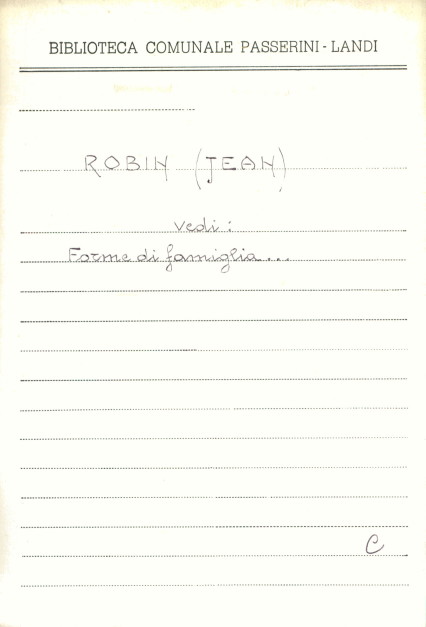 BIBLIOTECA COMUNALE PASSERINI-LANDI
ROBIN (JEAN)
vedi:
Forme di famiglia...
C